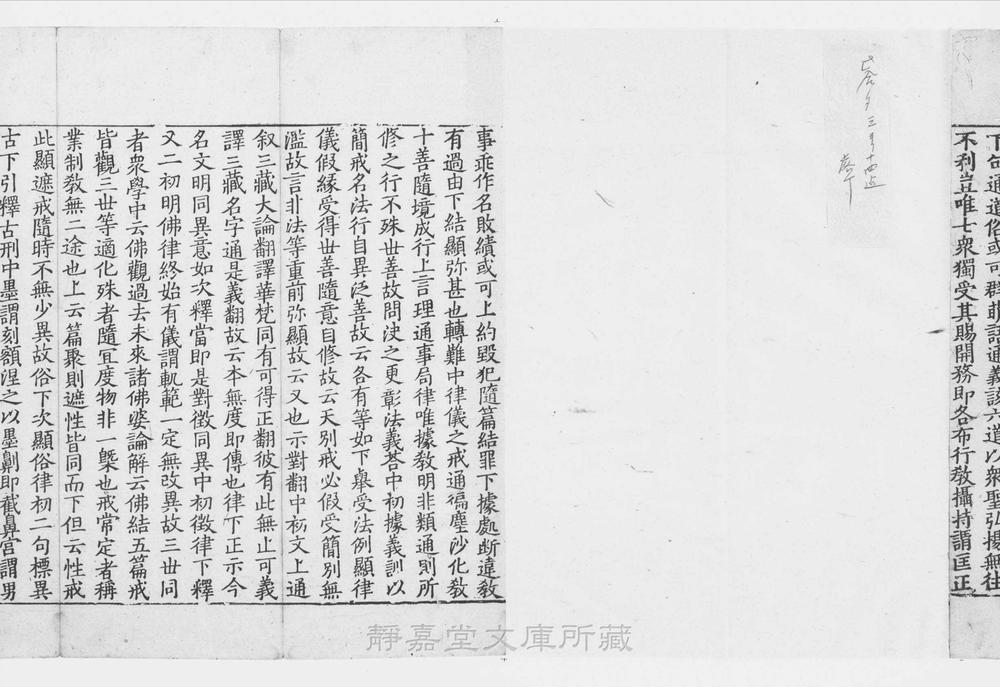 下句通道俗或可群萌語通義該六道以衆聖弘揚無往
不利豈唯七衆獨受其賜開務即各布行敎攝持謂匡正
事乖作名敗績或可上約毀犯隨篇結罪下據處断違敎
有過由下結顯弥甚也轉難中律儀之戒通徧塵沙化敎
十善隨境成行上言理通事局律唯據敎明非類通則所
修之行不殊世善故問決之更彰法義荅中初據義訓以
簡戒名法行自異泛善故云各有等如下舉受法例顯律
儀假緣受得世善隨意自修故云天別戒必假受簡別無
濫故言非法等重前弥顯故云又也示對翻中初文上通
叙三藏大論翻譯華梵同有可得正翻彼有此無止可義
譯三藏名字通是義翻故云本無度即傳也律下正示今
名文明同異意如次釋當即是對徵同異中初徵律下釋
又二初明佛律終始有儀謂軌範一定無改異故三世同
者衆學中云佛觀過去未來諸佛婆論解云佛結五篇戒
皆觀三世等適化殊者隨宜度物非一槩也戒常定者稱
業制敎無二途也上云篇聚則遮性皆同而下但云性戒
此顯遮戒隨時不無少異故俗下次顯俗律初二句標異
古下引釋古刑中墨謂刻額涅之以墨劓即截鼻宮謂男
靜嘉堂文庫所藏